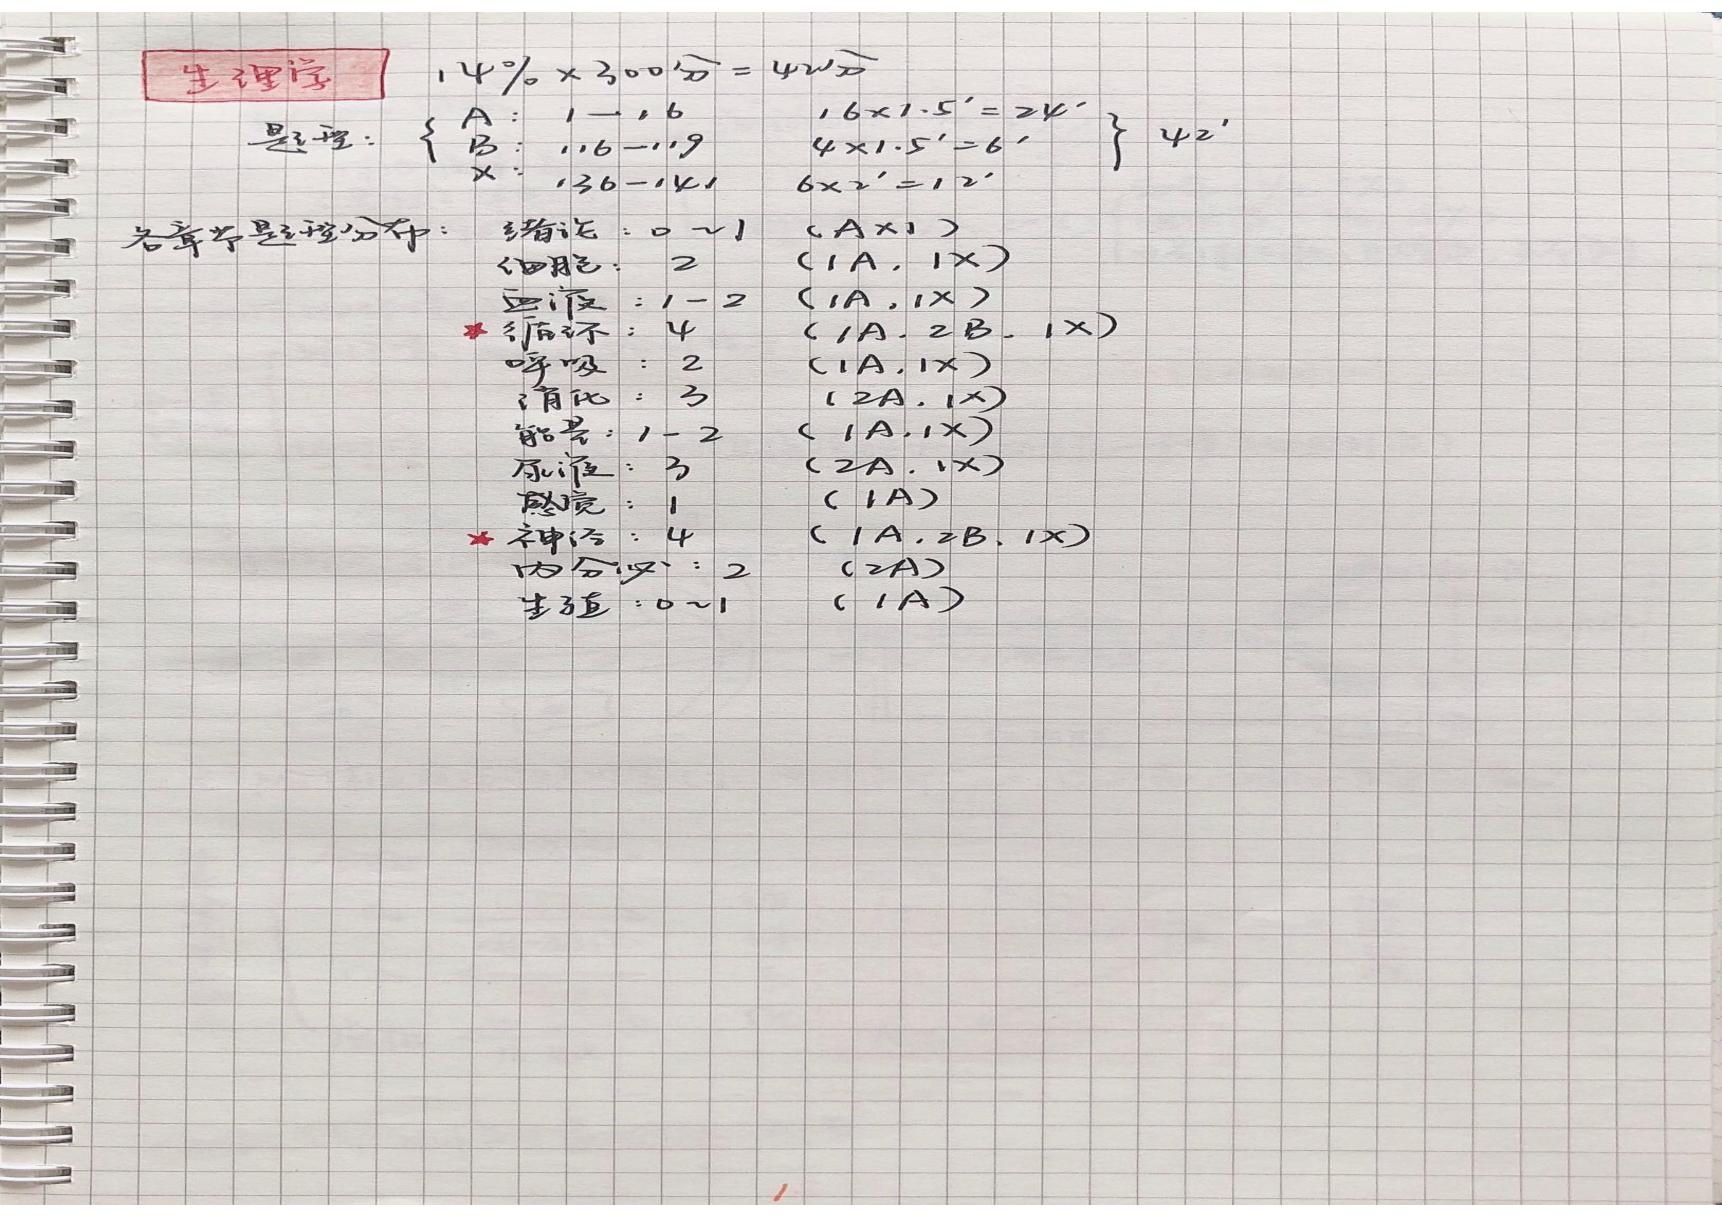 生理学 14% × 300分 = 42分
题型: { A: 1—16 16×1.5′=24′
B: 116—119 4×1.5′=6′ } 42′
X: 136—141 6×2′=12′
各章节题型分布: 绪论: 0~1 (A×1)
细胞: 2 (1A. 1X)
血液: 1-2 (1A. 1X)
★ 循环: 4 (1A. 2B. 1X)
呼吸: 2 (1A. 1X)
消化: 3 (2A. 1X)
能量: 1-2 (1A. 1X)
尿液: 3 (2A. 1X)
感觉: 1 (1A)
★ 神经: 4 (1A. 2B. 1X)
内分泌: 2 (2A)
生殖: 0~1 (1A)
1